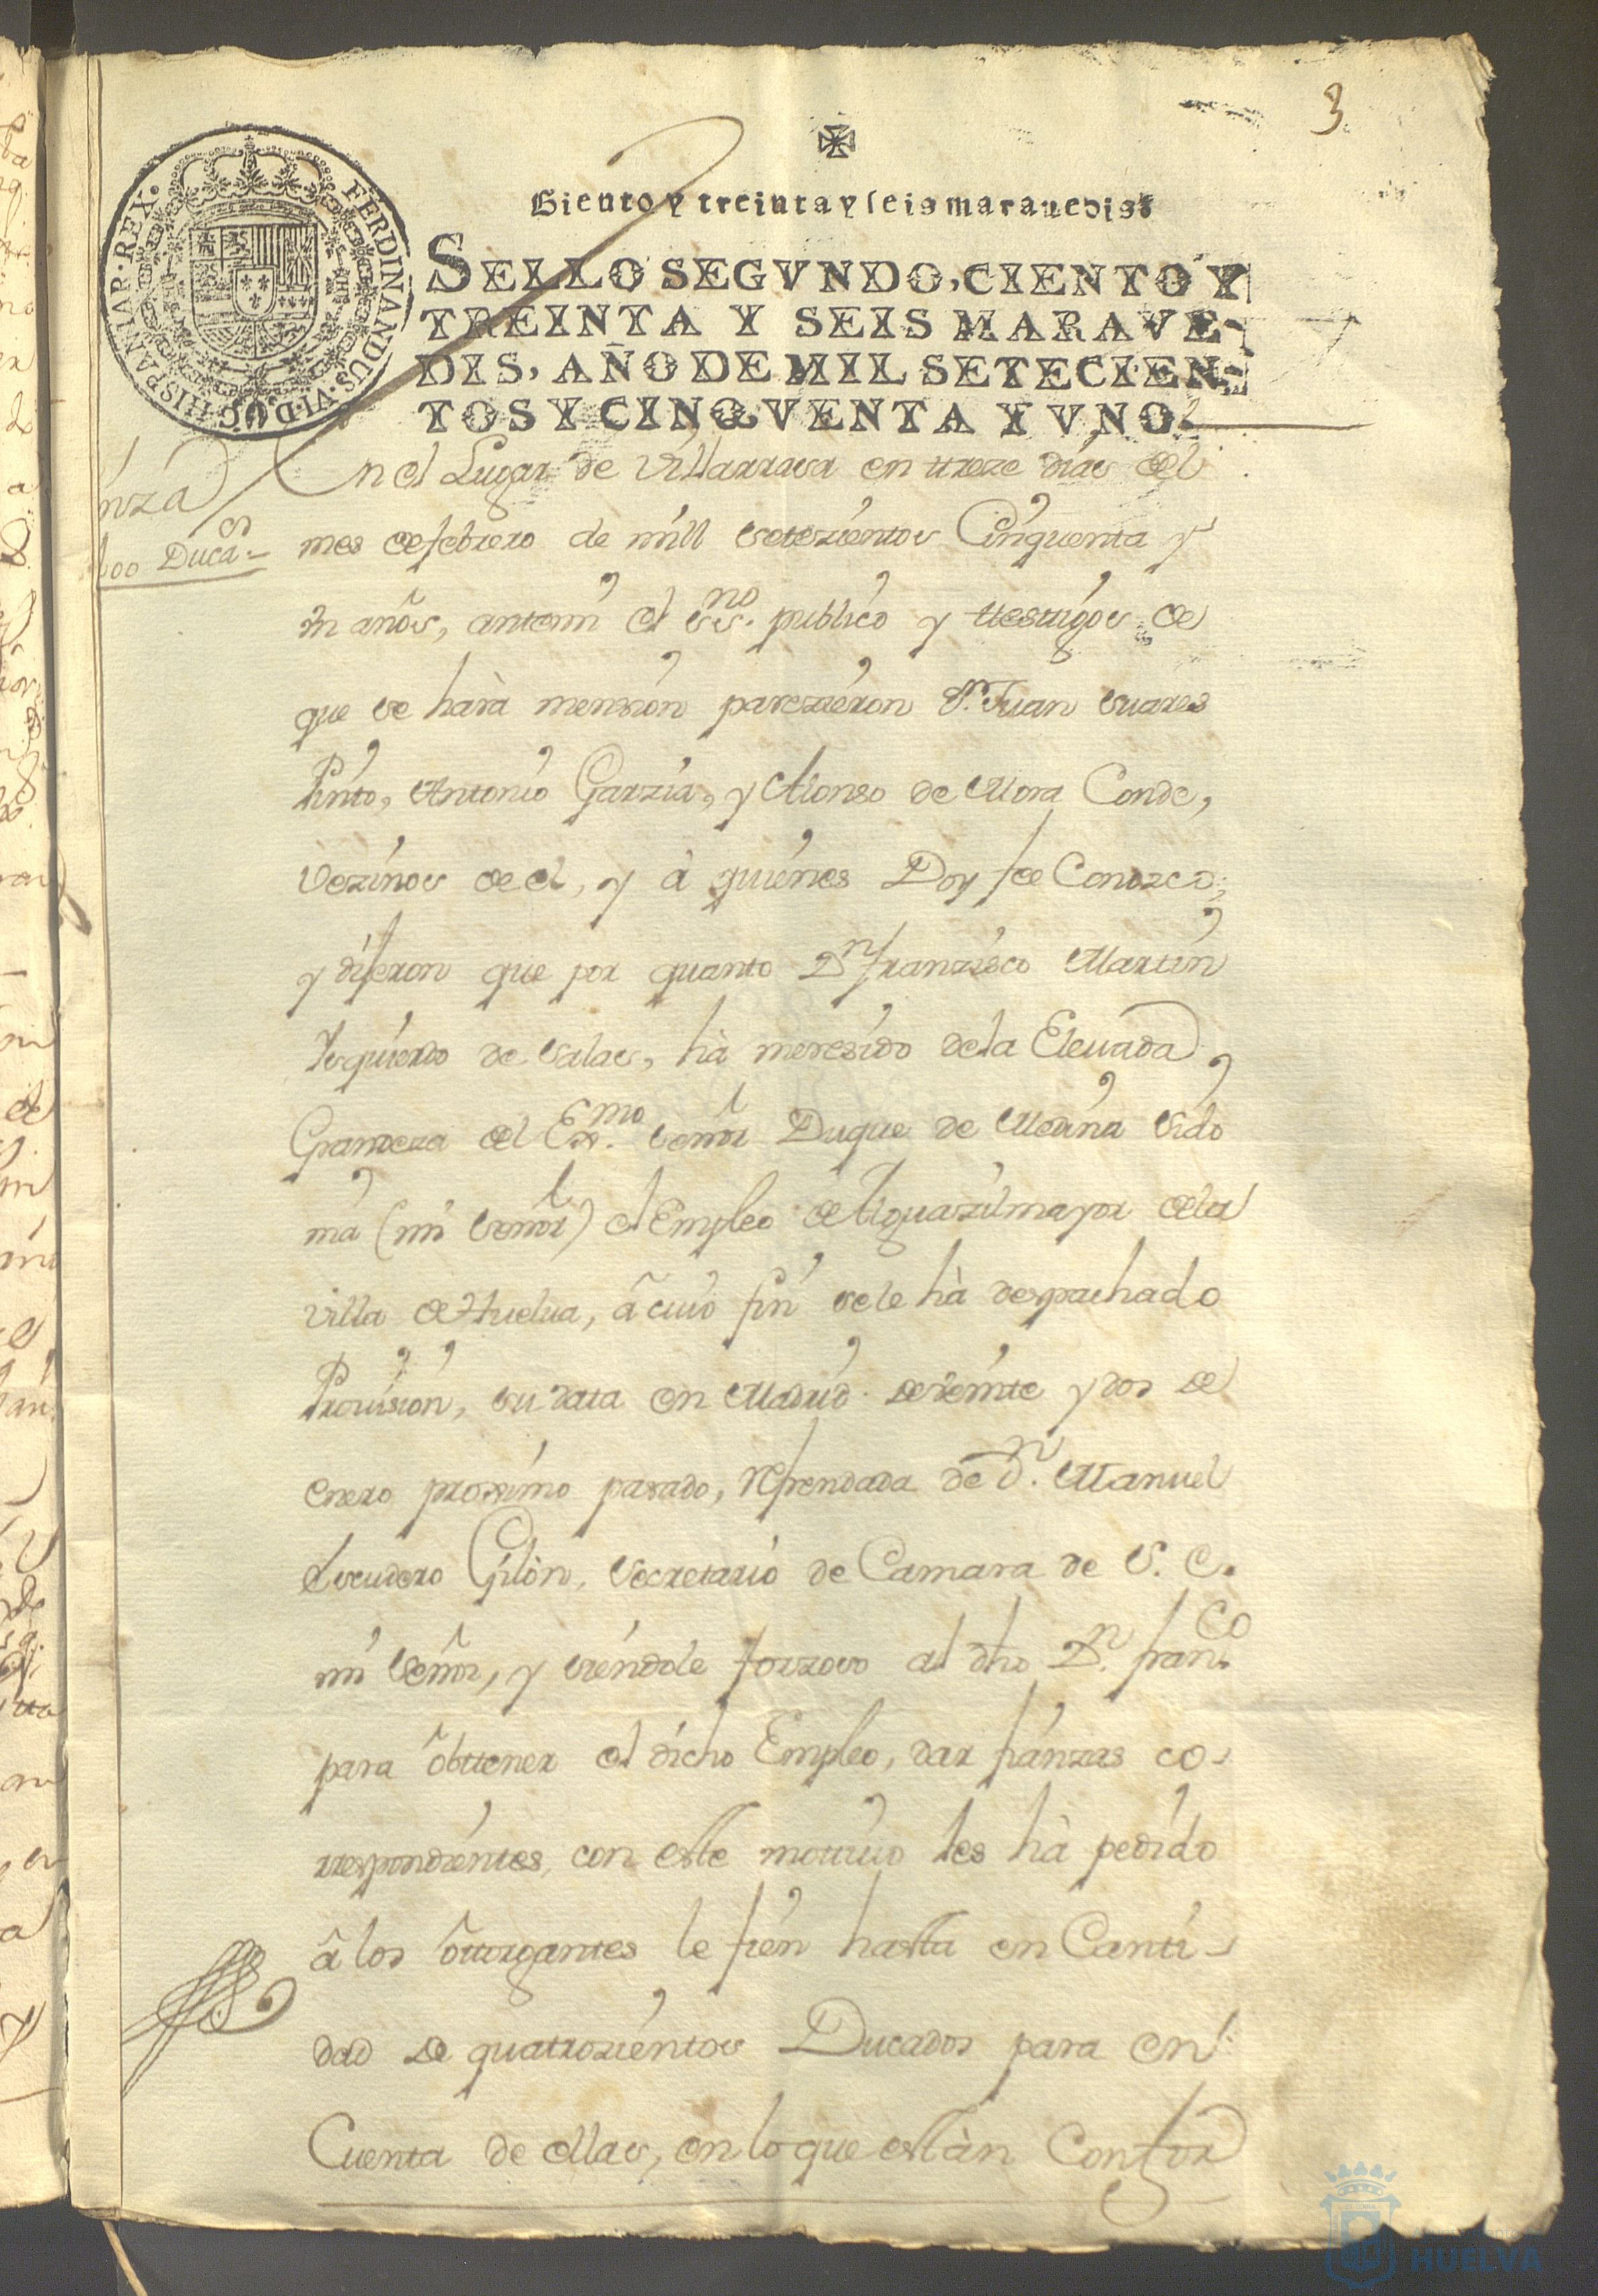 3
Ciento y treinta y seis marauedis
SELLO SEGVNDO, CIENTO Y
TREINTA Y SEIS MARAVE-
DIS, AÑO DE MIL SETECIEN-
TOS Y CINQVENTA Y VNO.
FERDINANDUS·VI·D·G·HISPANIAR·REX·
nza
400 Duca.s
En el Lugar de Villarrasa en treze dias del
mes de febrero de mill setezientos Cinquenta y
un años, antemi el ss.no publico y testigos de
que se hará mension parezieron Dn. Juan suares
Pinto, Antonio Garzia, y Alonso de Mora Conde,
Vezinos de el, y à quienes Doy fee Conozco;
y dijeron que por quanto Dn franzisco Martin
Isquierdo de salas, hà meresido de la Eleuada
Grandeza del Ex.mo señor Duque de Medina Sido
nia (mi señor) el Empleo de Alguazil mayor de la
Villa de Huelua, à cuio fin se le hà despachado
Prouision, su data en Madrid de veinte y dos de
enero proximo pasado, refrendada de Dn. Manuel
Escudero Gilòn, secretario de Camara de S. E.
mi señor, y siendole forzoso al dho Dn. fran.co
para obttener el dicho Empleo, dar fianzas co-
rrespondientes, con este mottiuo les hà pedido
à los ôttorgantes le fien hasta en Canti-
dad de quatrozientos Ducados para en
Cuenta de ellas, en lo que estàn Confor
HUELVA